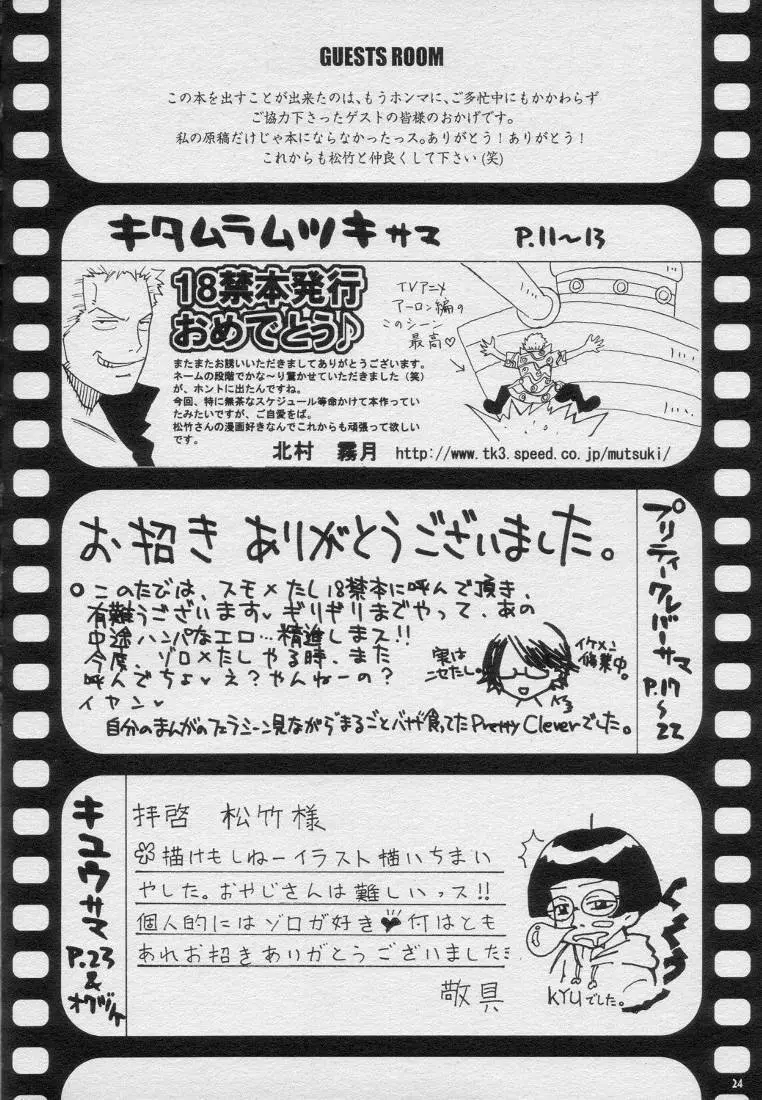 GUESTS ROOM
この本を出すことが出来たのは、もうホンマに、ご多忙中にもかかわらず
ご協力下さったゲストの皆様のおかげです。
私の原稿だけじゃ本にならなかったっス。ありがとう！ありがとう！
これからも松竹と仲良くして下さい(笑)
キタムラムツキサマ P.11〜13
18禁本発行
おめでとう♪
またまたお誘いいただきましてありがとうございます。
ネームの段階でかな〜り驚かせていただきました（笑）
が、ホントに出たんですね。
今回、特に無茶なスケジュール等命かけて本作ってい
たみたいですが、ご自愛をば。
松竹さんの漫画好きなんでこれからも頑張って欲しい
です。
北村 霧月 http://www.tk3.speed.co.jp/mutsuki/
TVアニメ
アーロン編の
このシーン
最高♡
お招きありがとうございました。
このたびは、スモ×たし18禁本に呼んで頂き、
有難うございます♥ギリギリまでやって、あの
中途ハンパなエロ…精進しまス!!
今度、ゾロ×たしやる時、また
呼んでちょ♥え？やんねーの？
イヤン♥
自分のまんがのフェラシーン見ながらまるごとバナナ食ってたPretty Cleverでした。
実は
ニセたし。
イケメン
修業中。
プリティークレバーサマ
P.17〜22
キユウサマ
P.23&オクヅケ
拝啓 松竹様
描けもしねーイラスト描いちまい
やした。おやじさんは難しいっス!!
個人的にはゾロが好き♥ 付はとも
あれお招きありがとうございました
敬具
KYUでした。
24